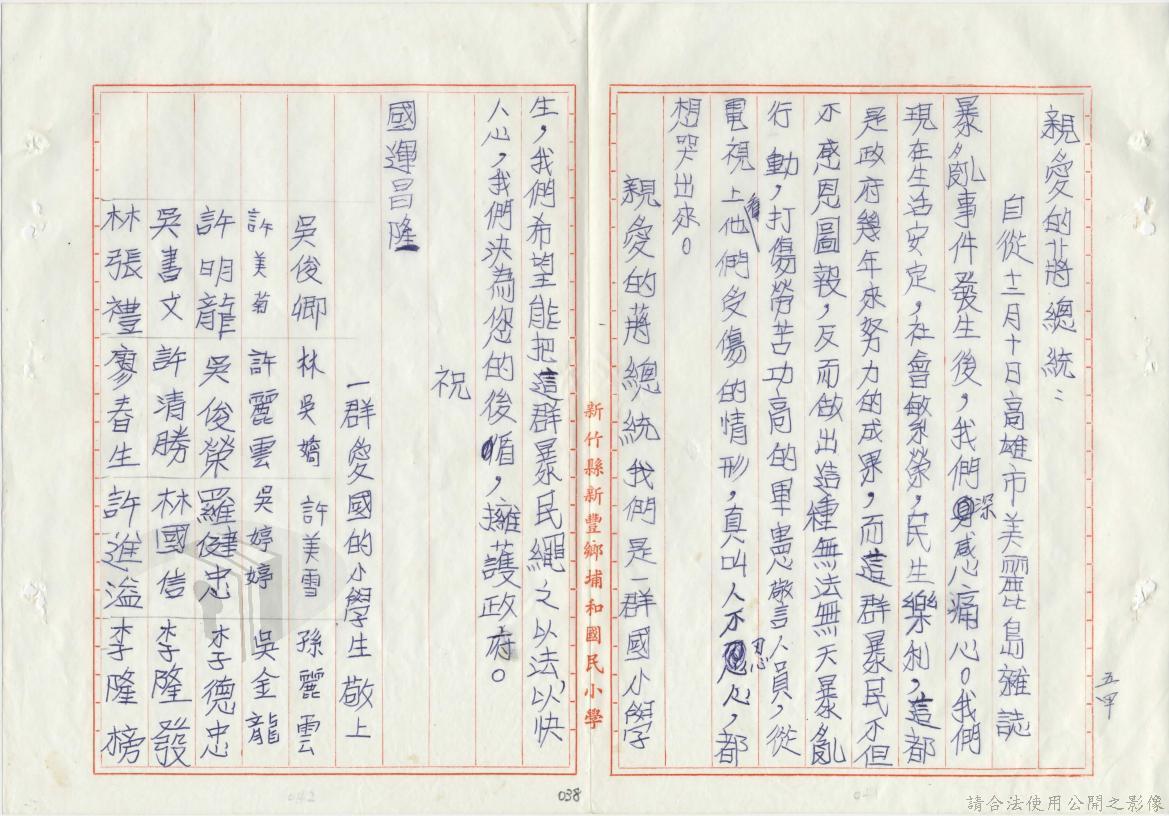 親愛的蔣總統：
自從十二月十日高雄市美麗島雜誌
暴亂事件發生後，我們深感心痛心。我們
現在生活安定，社會繁榮，民生樂利，這都
是政府幾年來努力的成果，而這群暴民不但
不感恩圖報，反而做出造種無法無天暴亂
行動，打傷勞苦功高的軍憲警人員，從
電視上看他們受傷的情形，真叫人不忍心，都
想哭出來。
親愛的蔣總統我們是一群國小學
生，我們希望能把這群暴民繩之以法，以快
人心，我們決為您的後循，擁護政府。
祝
國運昌隆
一群愛國的小學生敬上
吳俊卿 林吳嬌 許美雪 孫麗雲
許美菊 許麗雲 吳婷婷 吳金龍
許明龍 吳俊榮 羅健忠 李德忠
吳書文 許清勝 林國信 李隆發
林張禮 廖春生 許進溢 李隆榜
五甲
新竹縣新豐鄉埔和國民小學
038
042
請合法使用公開之影像